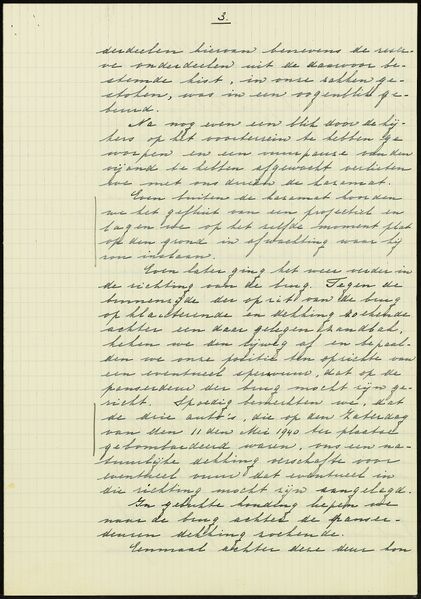 3.
derdeelen hiervan benevens de reser-
ve onderdeelen uit de daarvoor be-
stemde kist, in onze zakken ge-
stoken, was in een oogenblik ge-
beurd.
Na nog even een blik door de kij-
kers op het voorterrein te hebben ge
worpen en een vuurpauze van den
vijand te hebben afgewacht verlieten
we met ons drieën de kazemat.
Even buiten de kazemat hoorden
we het gefluit van een projectiel en
lagen we op het zelfde moment plat
op den grond in afwachting waar hij
zou inslaan.
Even later ging het weer verder in
de richting van de brug. Tegen de
binnenzijde der oprit van de brug
opklauterende en dekking zoekende
achter een daar gelegen zandbak,
keken we den rijweg af en bepaal-
den we onze positie ten opzichte van
een eventueel spervuur, dat op de
panserdeur der brug mocht zijn ge-
richt. Spoedig bemerkten we, dat
de drie auto's, die op den Zaterdag
van den 11 den Mei 1940 ter plaatse
gebombardeerd waren, ons een na-
tuurlijke dekking verschafte voor
eventueel vuur dat eventueel in
die richting mocht zijn aangelegd.
In gebukte houding liepen we
naar de brug achter de panser-
deuren dekking zoekende.
Eenmaal achter deze deur kon